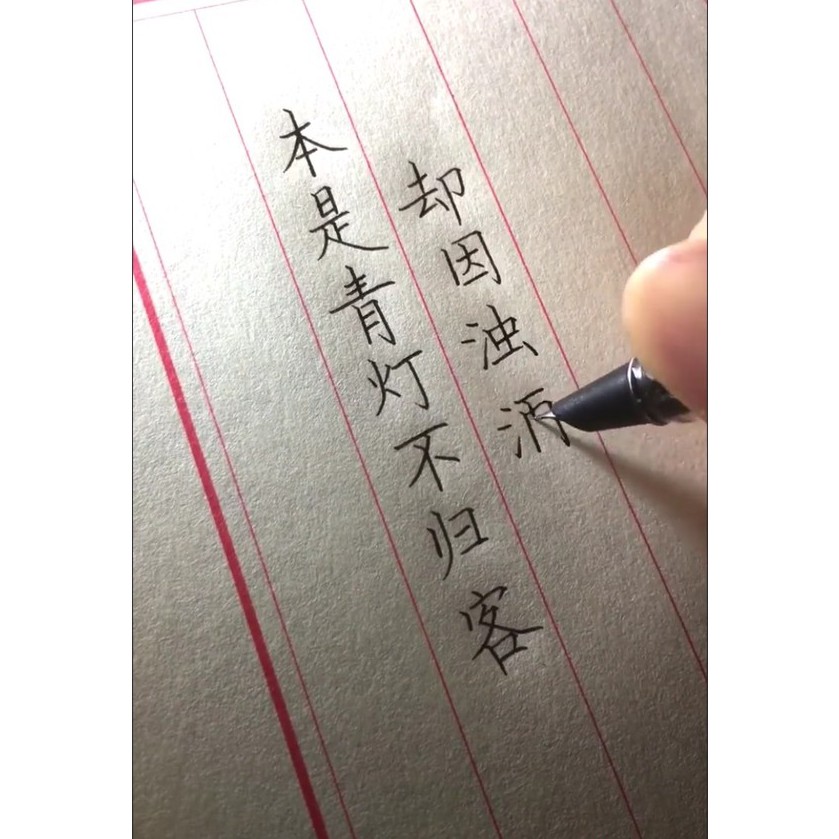 本是青灯不归客
却因浊酒